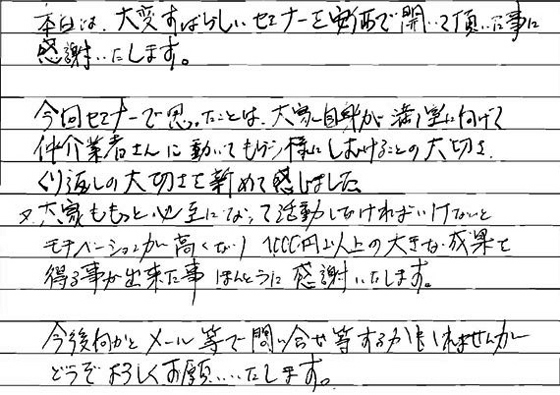 本日は、大変すばらしいセミナーを安価で開いて頂いた事に
感謝いたします。
今回セミナーで思ったことは、大家自身が満室に向けて
仲介業者さんに動いてもらう様にしむけることの大切さ、
くり返しの大切さを新めて感じました。
又大家ももっと必至になって活動しなければいけないと
モチベーションが高くなり 1000円以上の大きな成果を
得る事が出来た事 ほんとうに感謝いたします。
今後何かとメール等で問い合せ等するかもしれませんがー
どうぞよろしくお願いいたします。